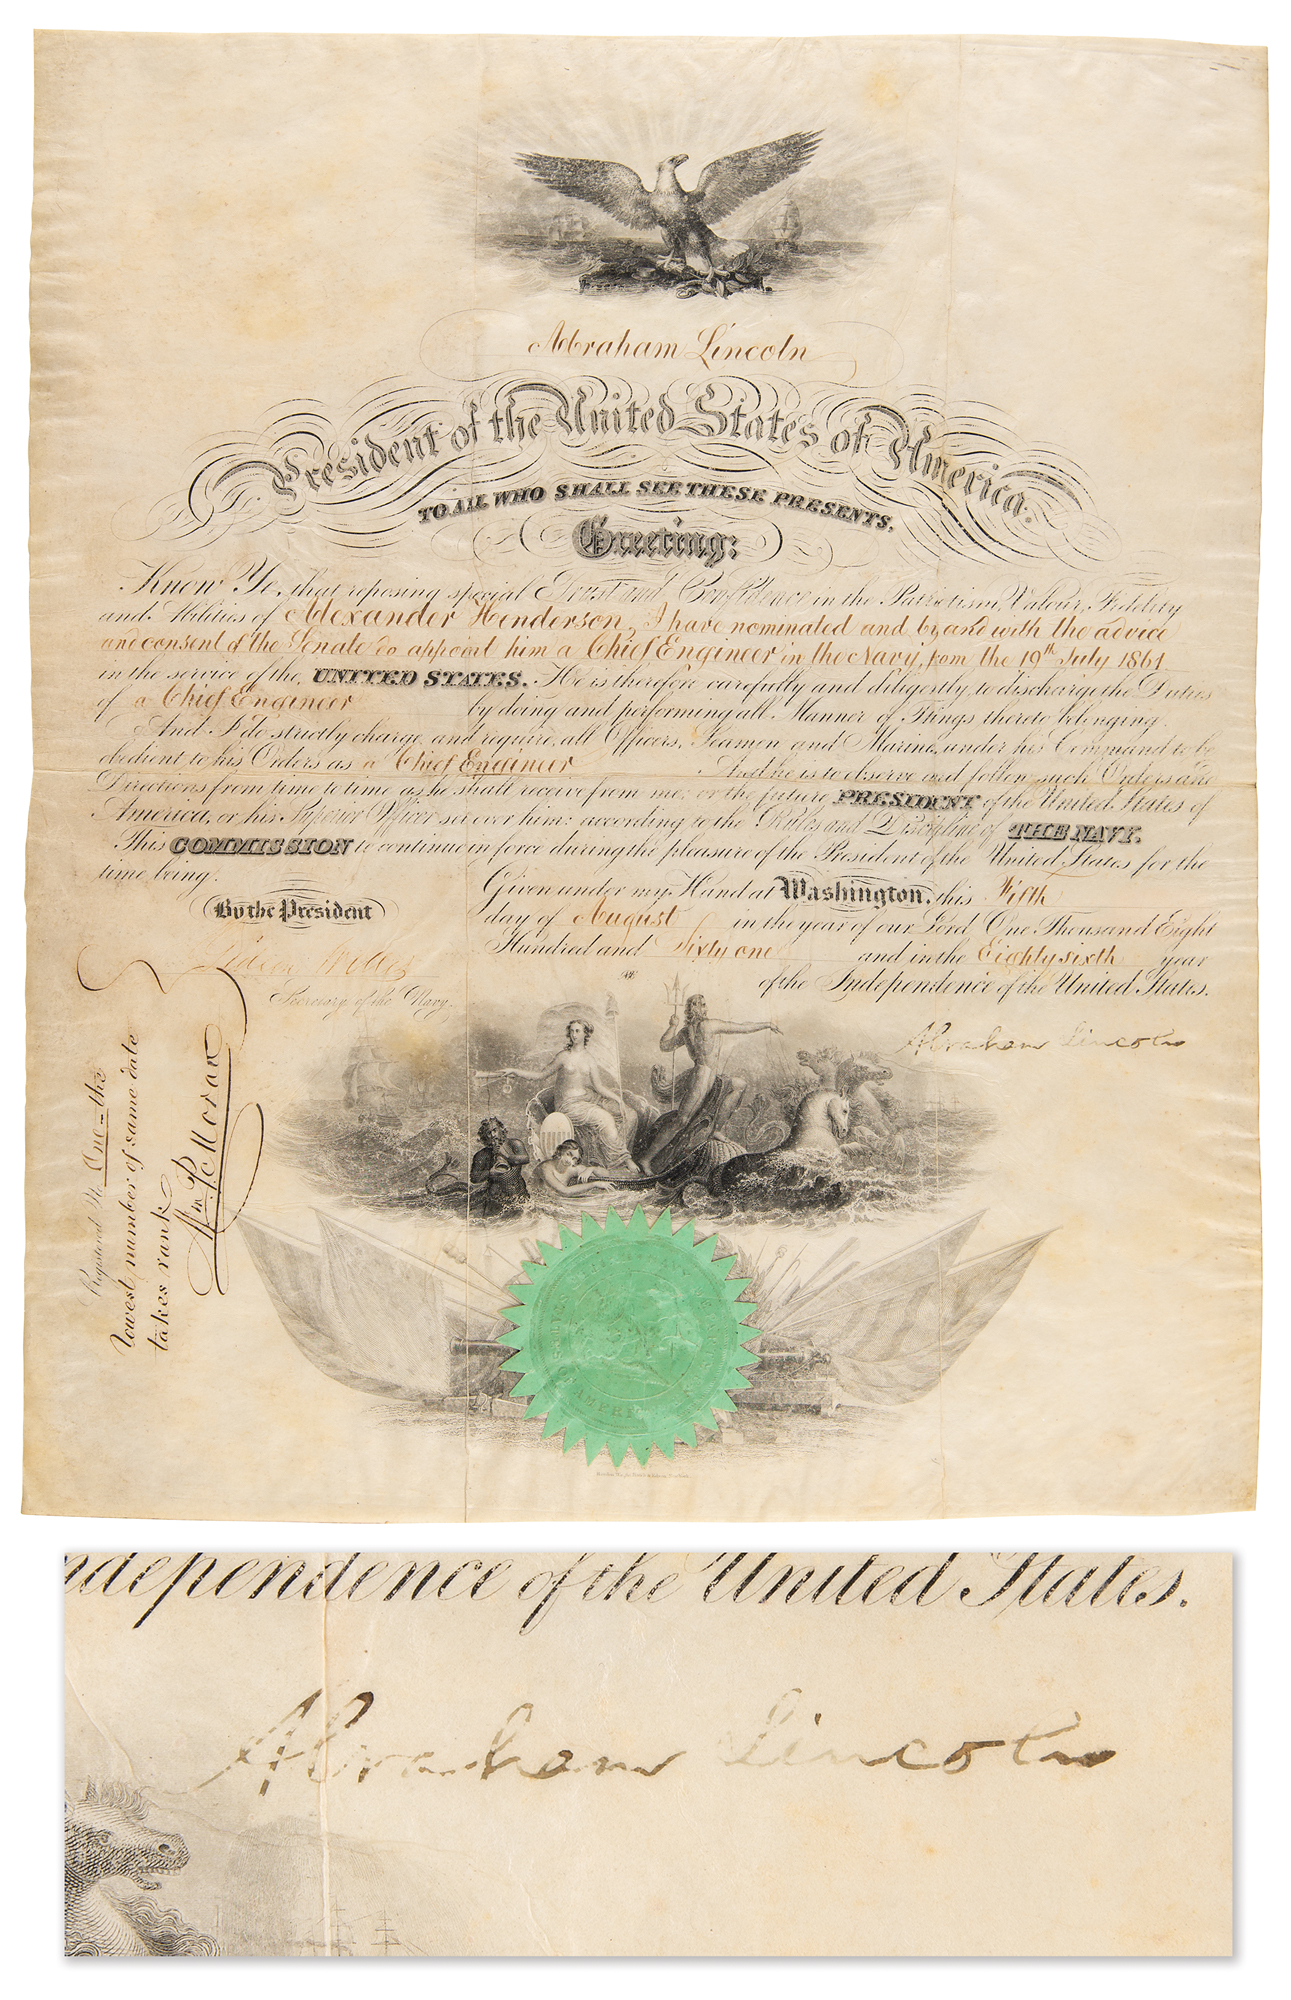 Abraham Lincoln
President of the United States of America.
TO ALL WHO SHALL SEE THESE PRESENTS.
Greeting:
Know Ye, that reposing special Trust and Confidence in the Patriotism, Valour, Fidelity
and Abilities of Alexander Henderson, I have nominated and by and with the advice
and consent of the Senate do appoint him a Chief Engineer in the Navy, from the 19th July 1861
in the service of the UNITED STATES. He is therefore carefully and diligently, to discharge the Duties
of a Chief Engineer by doing and performing all Manner of Things thereto belonging.
And I do strictly charge, and require, all Officers, Seamen and Marines, under his Command to be
obedient to his Orders as a Chief Engineer And he is to observe and follow such Orders and
Directions from time to time as he shall receive from me, or the future PRESIDENT of the United States of
America, or his Superior Officer set over him: according to the Rules and Discipline of THE NAVY.
This COMMISSION to continue in force during the pleasure of the President of the United States for the
time being.
Given under my Hand at Washington, this Fifth
By the President
day of August in the year of our Lord One Thousand Eight
Hundred and Sixty one and in the Eighty sixth year
of the Independence of the United States.
Gideon Welles
Secretary of the Navy.
Abraham Lincoln
Registered No. One - the
lowest number of same date
takes rank
Wm P. Moran
AMERI
ndependence of the United States.
Abraham Lincoln